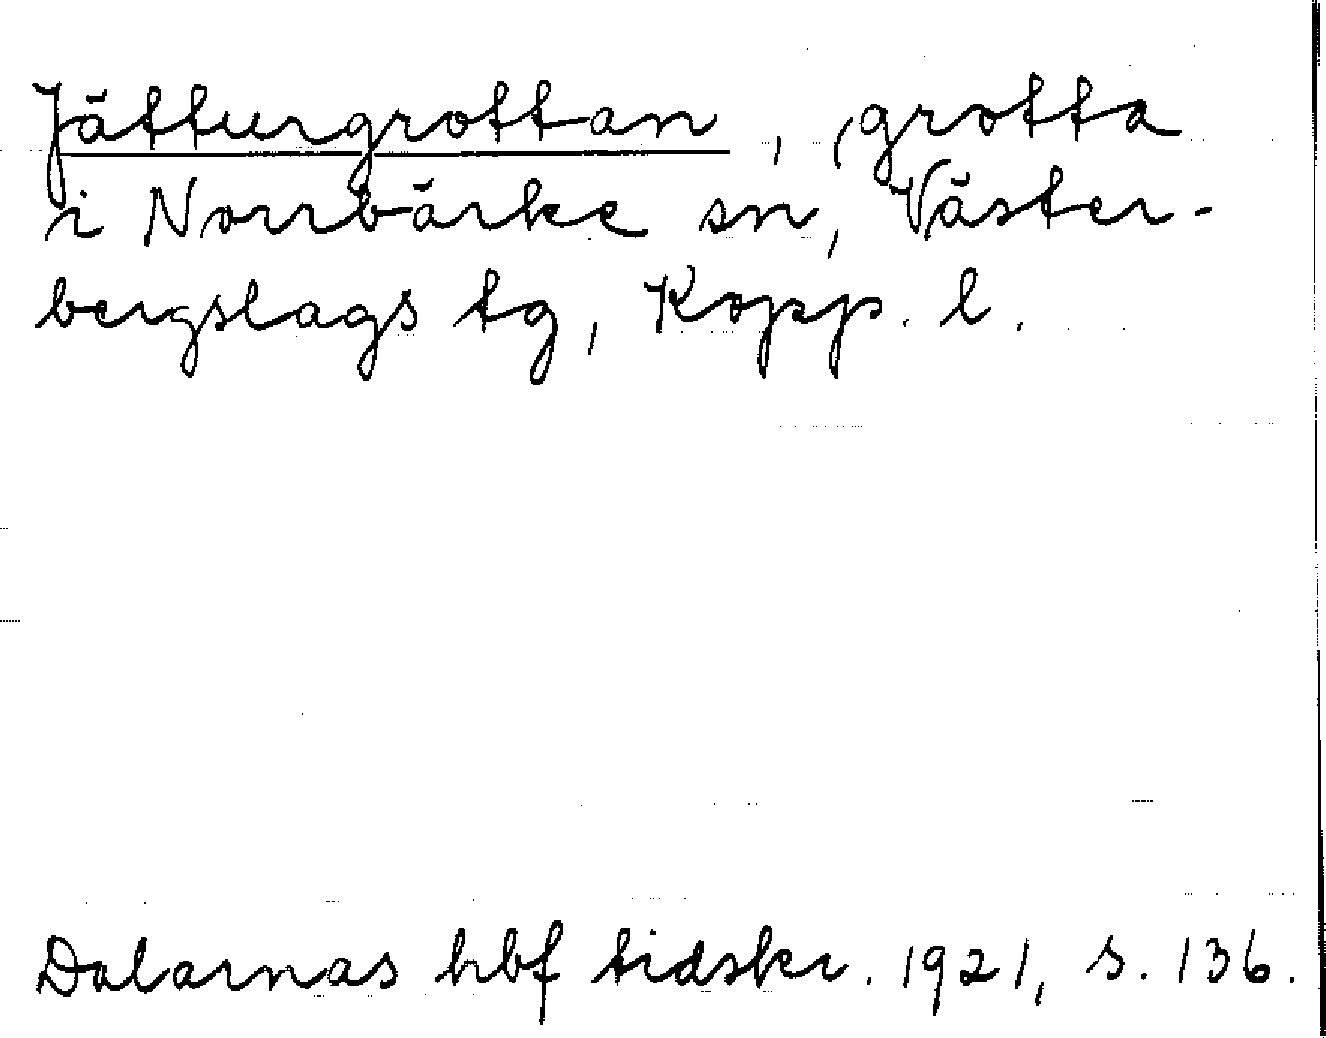 Jätturgrottan, (grotta
i Norrbärke sn, Väster-
bergslags tg, Kopp. l.
Dalarnas hbf tidskr. 1921, s. 136.